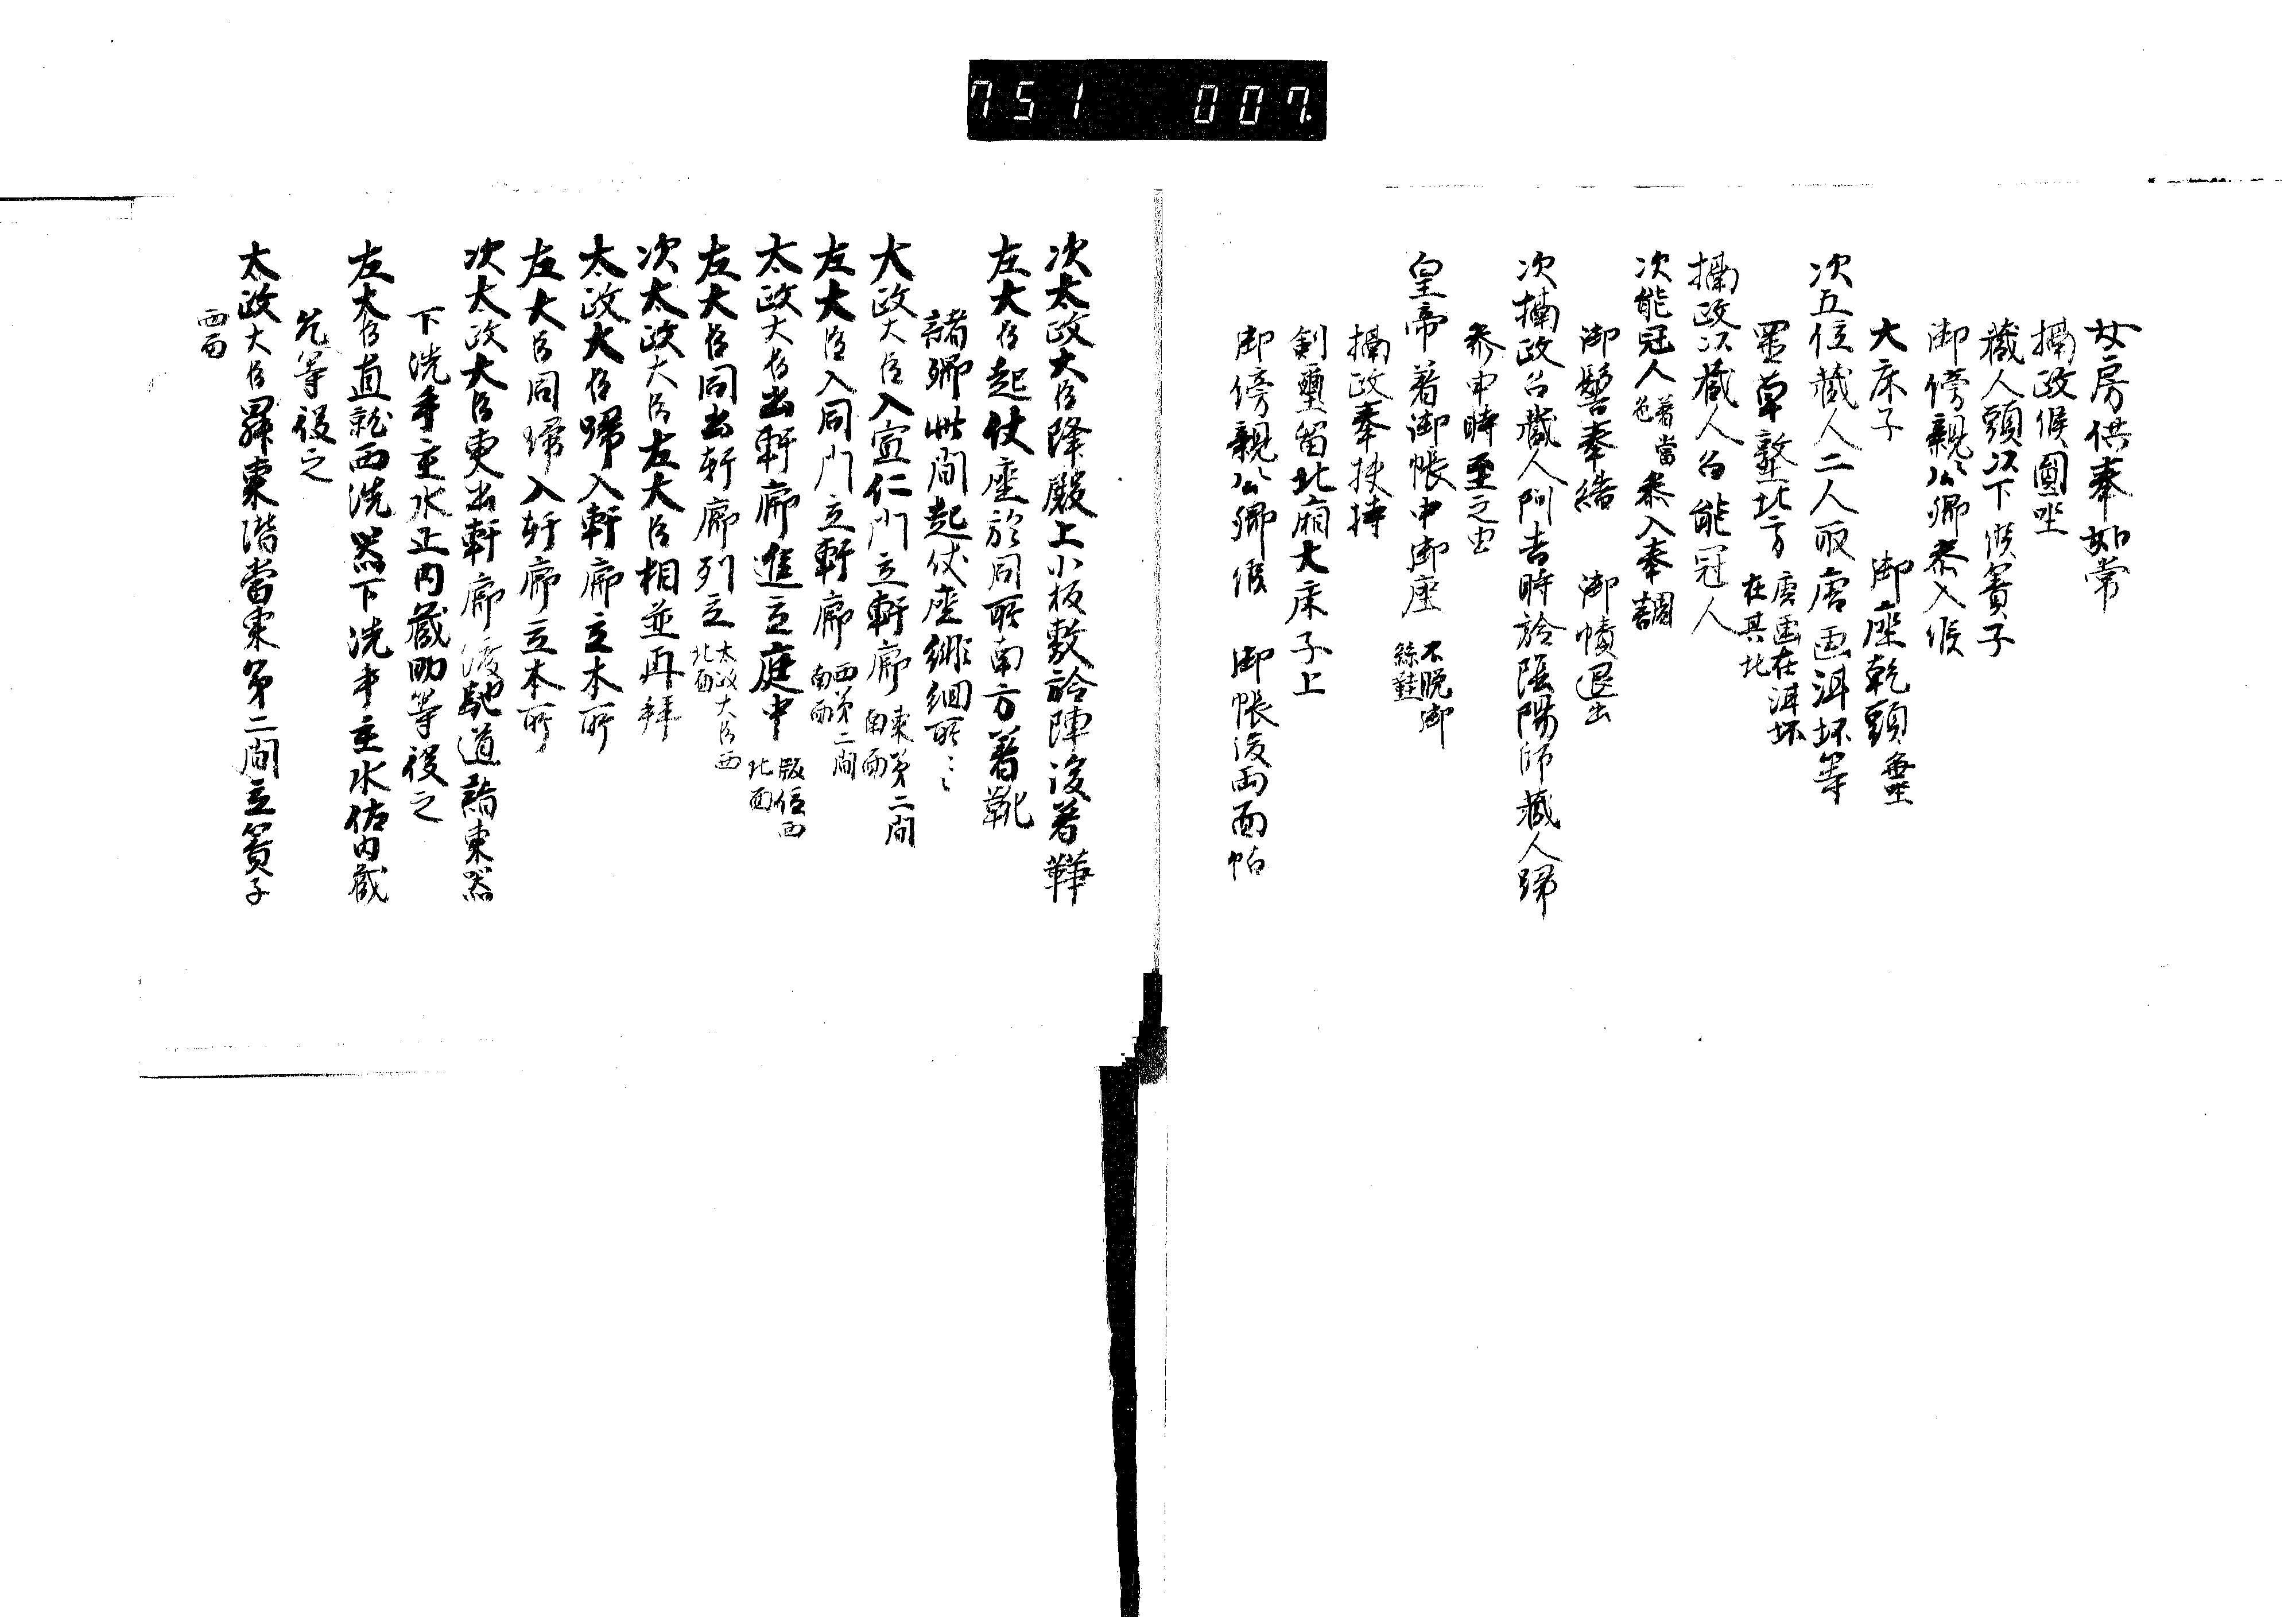 751 007.
女房供奉如常
攝政候圓座
藏人頭以下候簀子
御傍親公卿參入候
大床子 御座乾頭無坐
次五位藏人二人取唐匣泔坏等
置草墪北方 唐匣在泔坏
在其北
攝政以藏人召能冠人
次能冠人 着當色 參入奉調
御鬢奉結 御幘退出
次攝政召藏人問吉時於陰陽師藏人歸
參申時至之由
皇帝著御帳中御座 不脱御
絲鞋
攝政奉扶持
劍璽留北廂大床子上
御傍親公卿候 御帳後両面帖
次太政大臣降殿上小板敷於陣後著鞾
左大臣起仗座於同所南方著靴
諸卿此間起仗座徘徊所々
大政大臣入宣仁門立軒廊 東第二間
南面
左大臣入同門立軒廊 西第二間
南面
太政大臣出軒廊進立庭中 版位西
北面
左大臣同出軒廊列立 太政大臣西
北面
次太政大臣左大臣相並再拜
太政大臣歸入軒廊立本所
左大臣同歸入軒廊立本所
次太政大臣更出軒廊渡馳道詣東器
下洗手主水正内藏助等役之
左大臣直就西洗器下洗手主水佑内藏
允等役之
太政大臣昇東階當東第二間立簀子
西面